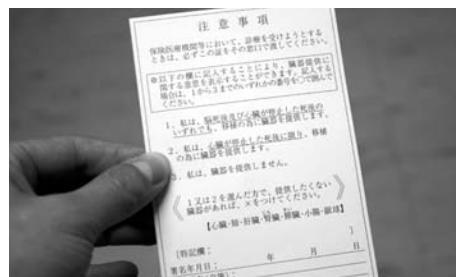 注意事項
保険医療機関等において、診療を受けようとする
ときは、必ずこの証をその窓口で渡してください。
※以下の欄に記入することにより、臓器提供に
関する意思を表示することができます。記入する
場合は、1から3までのいずれかの番号を○で囲んで
ください。
1. 私は、脳死後及び心臓が停止した死後の
いずれでも、移植の為に臓器を提供します。
2. 私は、心臓が停止した死後に限り、移植
の為に臓器を提供します。
3. 私は、臓器を提供しません。
《1又は2を選んだ方で、提供したくない
臓器があれば、×をつけてください。》
【心臓・肺・肝臓・腎臓・膵臓・小腸・眼球】
〔特記欄: 〕
署名年月日: 年 月 日